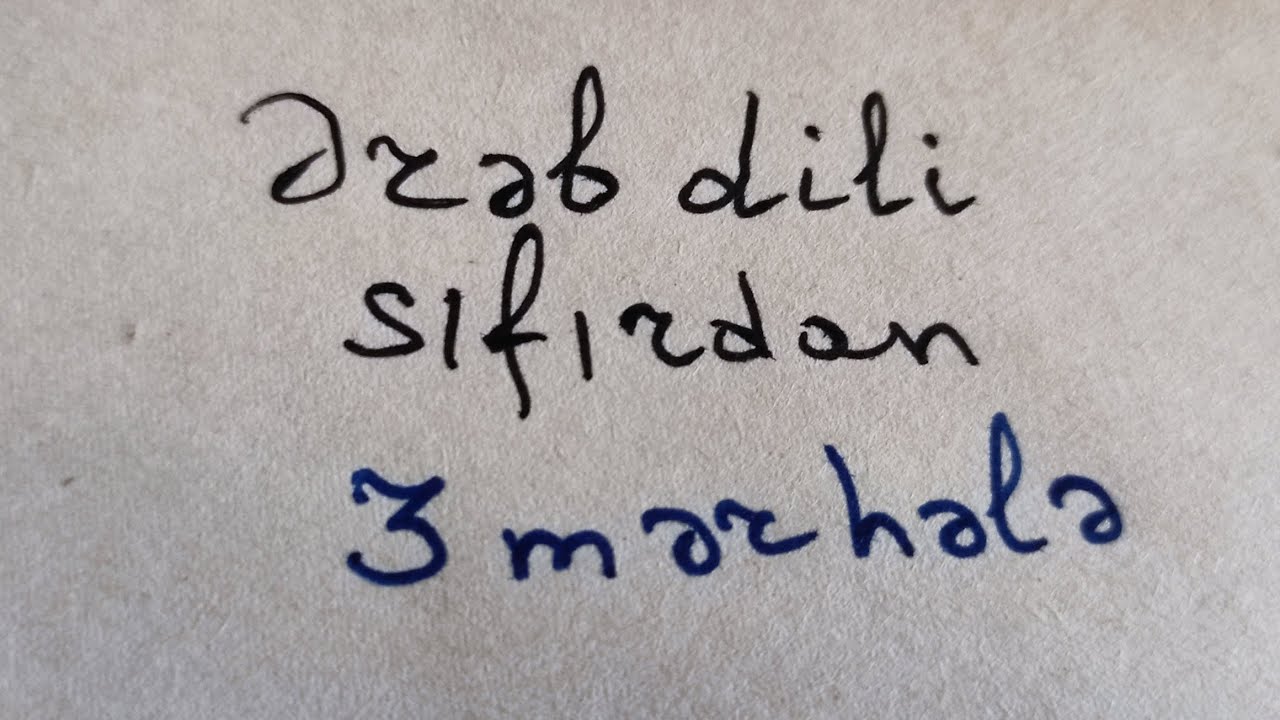 Ərəb dili
sıfırdan
3 mərhələ